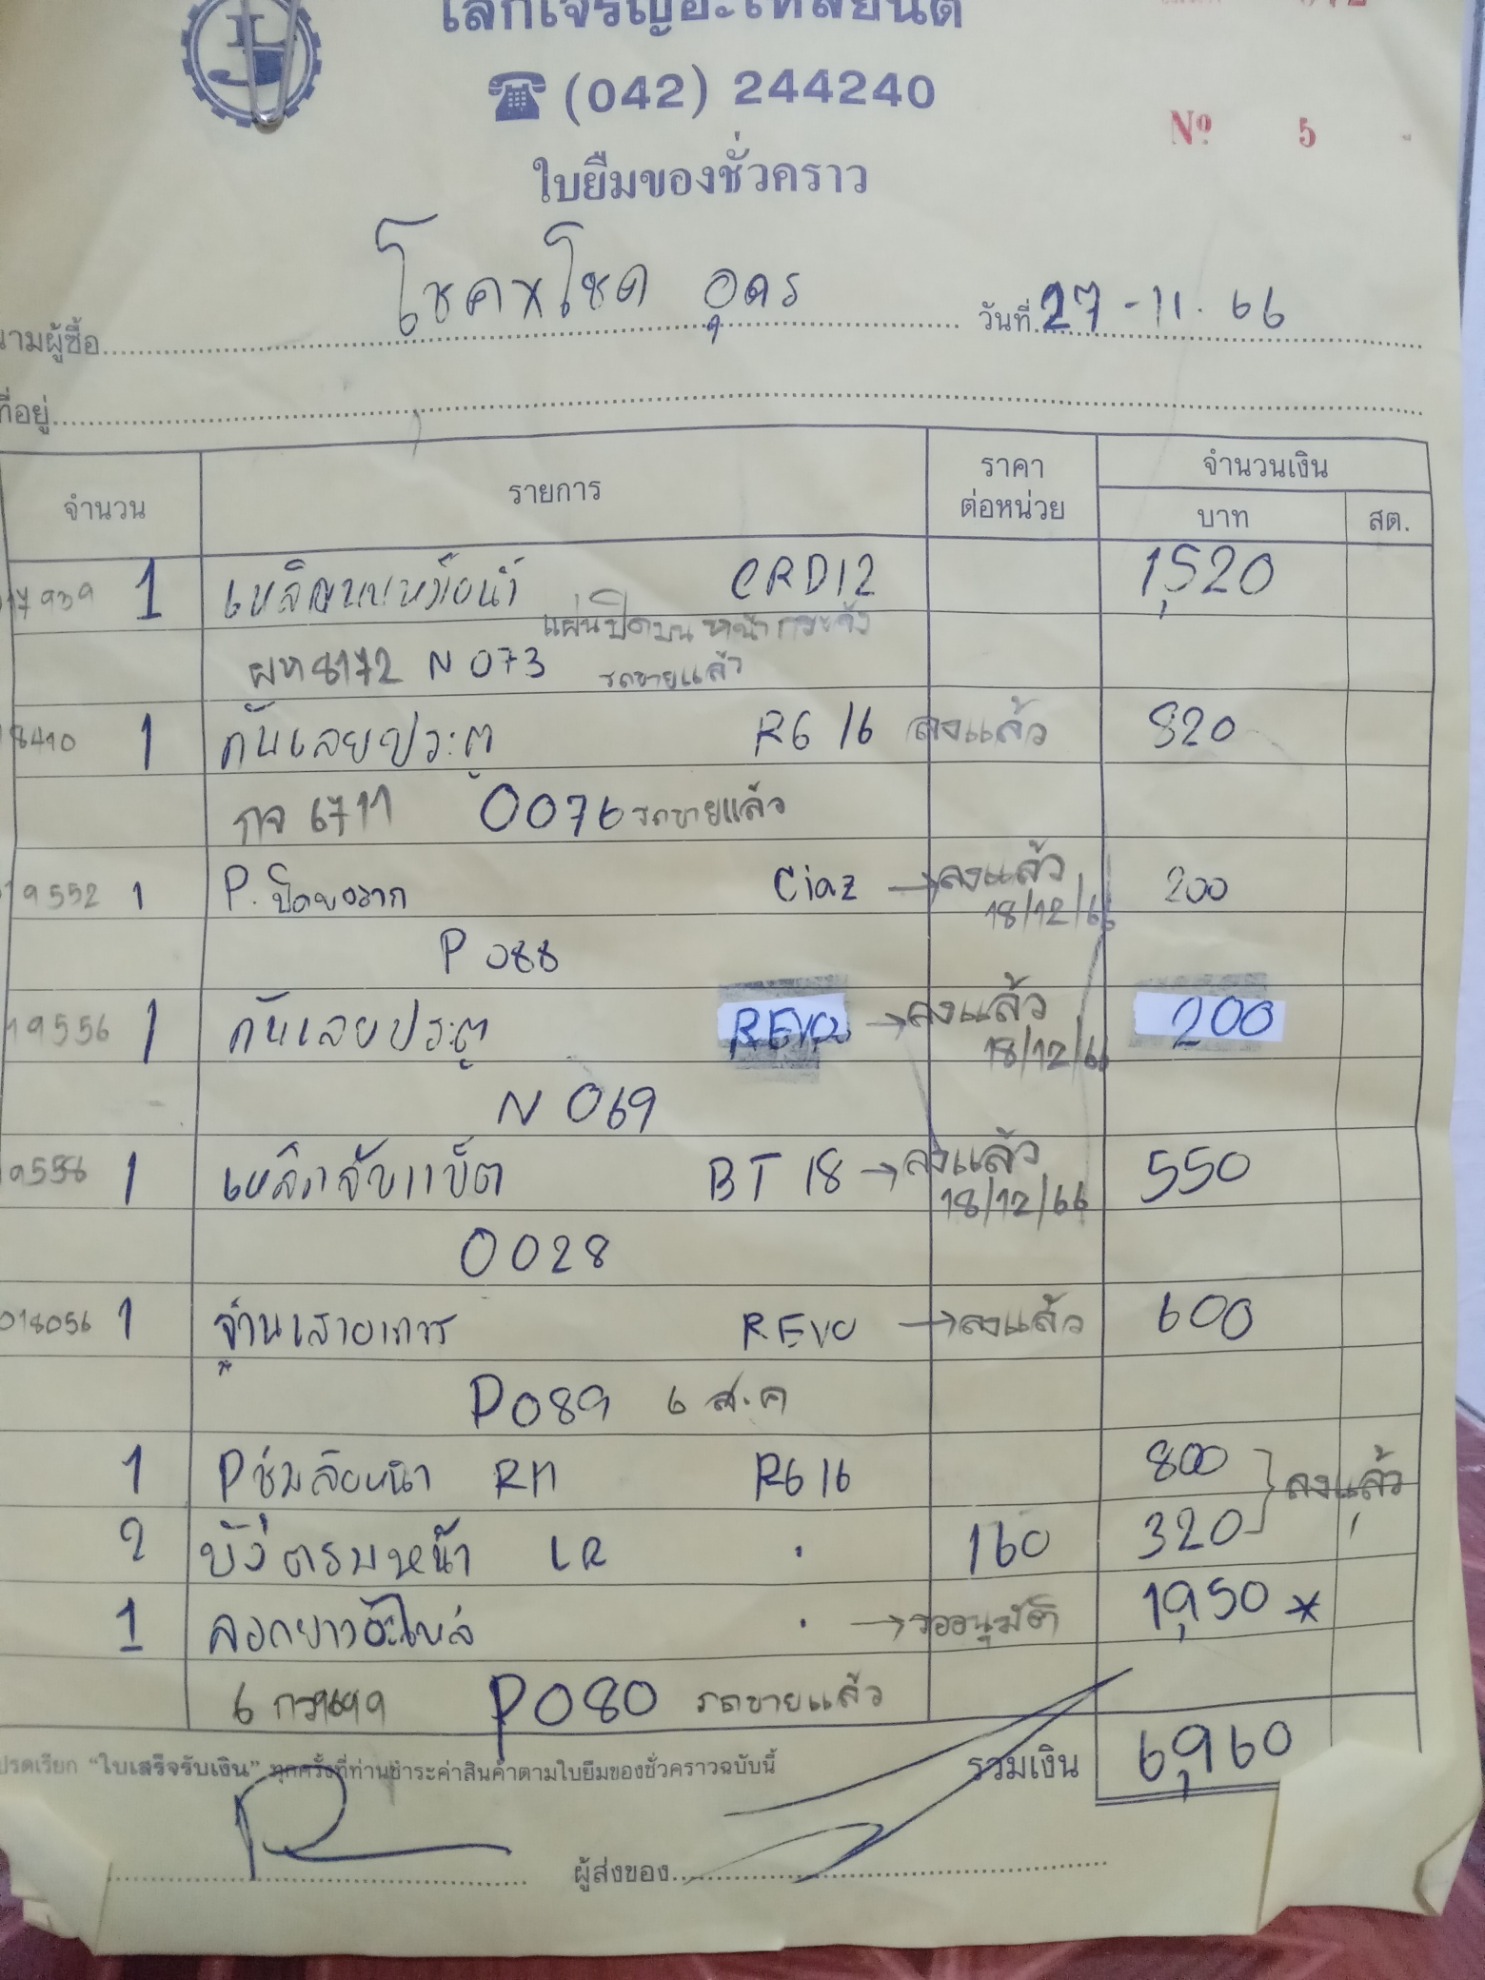 เล็กเจริญอะไหล่ยนต์
☎ (042) 244240
Nº 5
ใบยืมของชั่วคราว
นามผู้ซื้อ โชค x โชค อุดร วันที่ 27-11.66
ที่อยู่
จำนวน รายการ ราคาต่อหน่วย จำนวนเงิน
บาท สต.
17939 1 CRD12 1,520
แผ่นปิดบนหน้ากระจัง
ผห8172 N073 รถขายแล้ว
18410 1 กันเลยประตู R616 ลงแล้ว 820
กจ 6711 0076 รถขายแล้ว
19552 1 P. Ciaz → ลงแล้ว 18/12/66 200
P088
19556 1 กันเลยประตู REVO → ลงแล้ว 18/12/66 200
N069
9558 1 เหล็กจับแบ็ต BT18 → ลงแล้ว 18/12/66 550
0028
018056 1 REVO → ลงแล้ว 600
P089 6 ส.ค
1 Pซุ้มล้อหน้า RH R616 800
ลงแล้ว
2 บังตรมหน้า LR . 160 320
1 . → รออนุมัติ 1,950 *
P080 รถขายแล้ว
โปรดเรียก "ใบเสร็จรับเงิน" ทุกครั้งที่ท่านชำระค่าสินค้าตามใบยืมของชั่วคราวฉบับนี้ รวมเงิน 6,960
ผู้ส่งของ